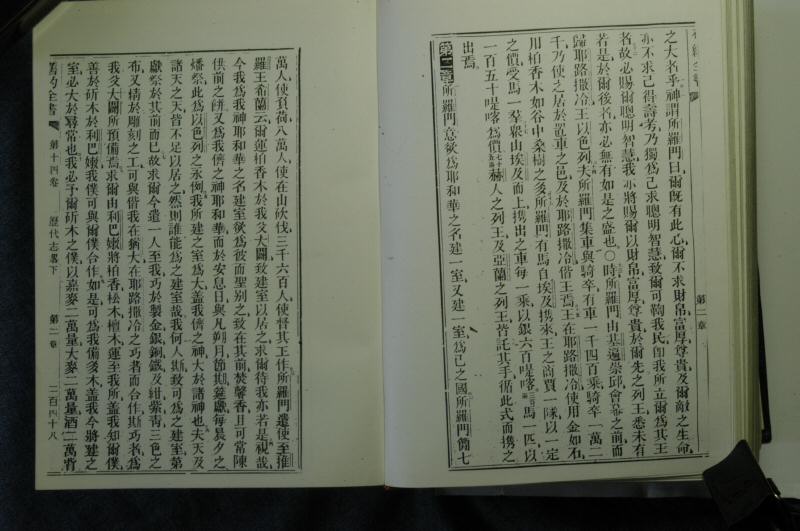 之大名乎神謂所羅門曰爾既有此心爾不求財帛富厚尊貴及爾敵之生命
亦不求己得壽考乃獨爲己求聰明智慧致爾可鞫我民卽我所立爾爲其王
者故必賜爾聰明智慧我亦將賜爾以財帛富厚尊貴於爾先之列王悉未有
若是於爾後者亦必無有如是之盛也○時所羅門由基遍崇邱會幕之前而
歸耶路撒冷王以色列夫所羅門集車與騎卒有車一千四百乘騎卒一萬二
千乃使之居於置車之邑及於耶路撒冷偕王焉王在耶路撒冷使用金如石
用柏香木如谷中桑樹之多所羅門有馬自埃及携來王之商賈一隊以一定
之價受馬一羣衆由埃及而上携出之車每一乘以銀六百是喀馬一匹以
一百五十是喀爲價赫人之列王及亞蘭之列王皆託其手循此式而携之
出焉
第二章所羅門意欲爲耶和華之名建一室又建一室爲己之國所羅門備七
第二章
萬人使負荷八萬人使在山砍伐三千六百人使督其工作所羅門遣使至推
羅王希蘭云爾運柏香木於我父大闢致建室以居之求爾待我亦若是視哉
今我爲我神耶和華之名建室欲爲彼而聖別之致在其前焚馨香且可常陳
供前之餅又爲我儕之神耶和華而於安息日與凡朔月節期筵獻每晨夕之
燔祭此爲以色列之永例我所建之室爲大蓋我儕之神大於諸神也夫天及
諸天之天皆不足以居之然則誰能爲之建室哉我何人斯致可爲之建室第
獻祭於其前而已故求爾今遣一人至我巧於製金銀銅鐵及紺紫靑三色之
布又精於雕刻之工可與偕我在猶大在耶路撒冷之巧者而合作斯巧者爲
我父大闢所預備焉求爾由利巴嫩將柏香松木檀木運至我所蓋我知爾僕
善於斫木於利巴嫩我僕可與爾僕合作如是可爲我備多木蓋我今將建之
室必大於尋常也我必予爾斫木之僕以嘉麥二萬量大麥二萬量酒二萬背
舊約全書
第十四卷
歷代志畧下
第二章
二百四十八